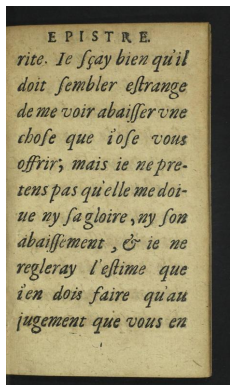 EPISTRE.
rite. Ie ſçay bien qu'il
doit ſembler eſtrange
de me voir abaiſſer vne
choſe que i'oſe vous
offrir, mais ie ne pre-
tens pas qu'elle me doi-
ue ny ſa gloire, ny ſon
abaiſſement, & ie ne
regleray l'eſtime que
i'en dois faire qu'au
jugement que vous en